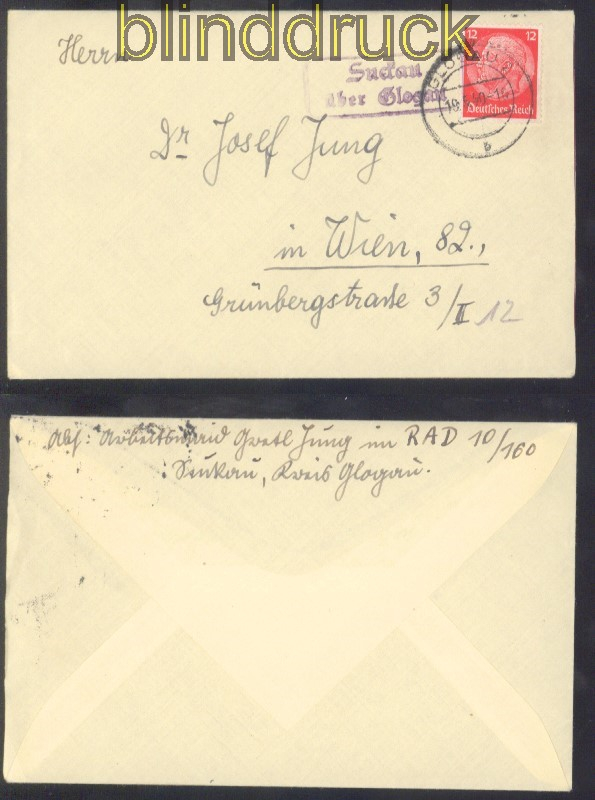 blinddruck
Herrn
Suckau
über Glogau
GLOGAU
12 12
Deutsches Reich
b
Dr Josef Jung
in Wien, 82.,
Grünbergstraße 3/II 12
Abs: Arbeitsmaid Gretl Jung im RAD 10/160
Suckau, Kreis Glogau.